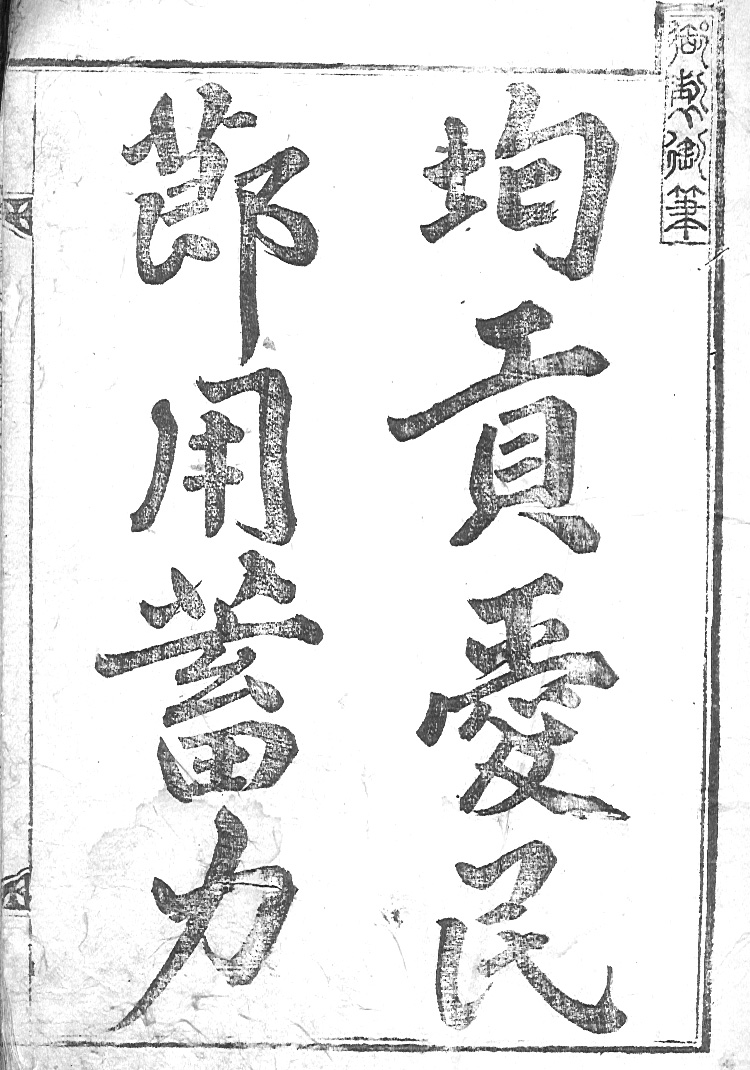 御製御筆
均貢愛民
節用蓄力